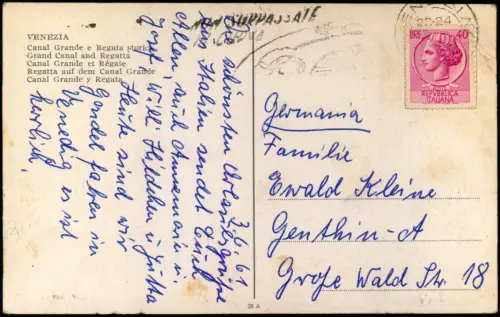 VENEZIA
Canal Grande e Regata storica
Grand Canal and Regatta
Canal Grande et Régate
Regatta auf dem Canal Grande
Canal Grande y Regata
3.6.61
Die schönsten Urlaubsgrüße
aus Italien sendet Euch
Allen, auch Annemarie u.
Jost Willi Hildchen u. Jutta
Heute sind wir
Gondel fahren in
Venedig es ist
herrlich.
NON SORPASSATE
22-24
LIRE 40
REPUBBLICA
ITALIANA
Germania
Familie
Ewald Kleine
Genthin-A
Große Wald Str. 18
28 A